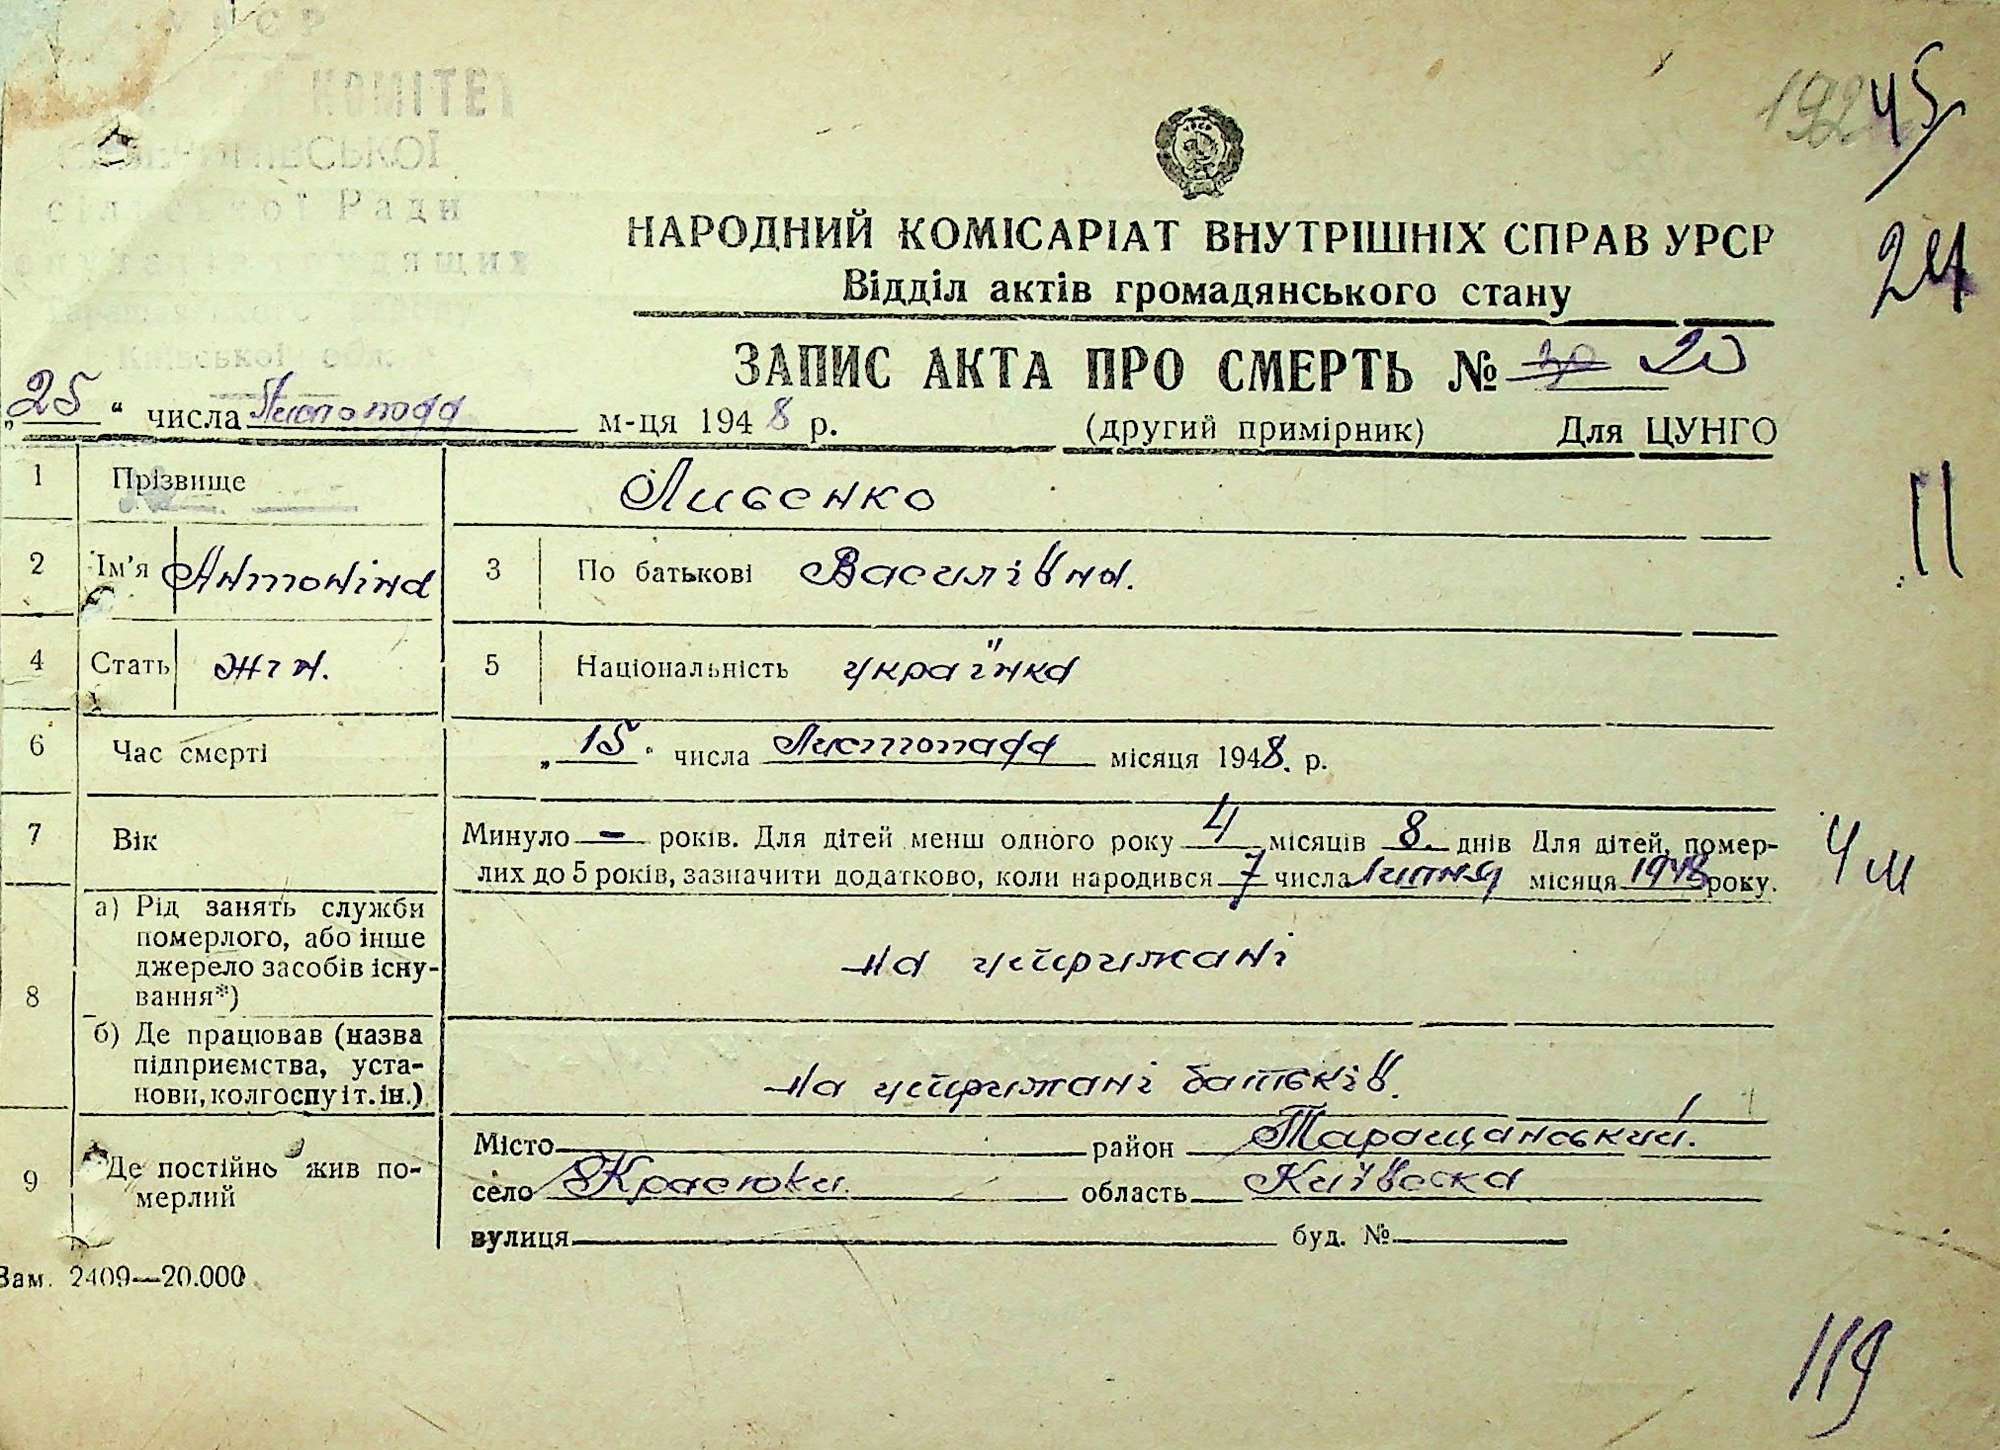 КОМІТЕТ
сільської Ради
Київської обл.
192
45
24
НАРОДНИЙ КОМІСАРІАТ ВНУТРІШНІХ СПРАВ УРСР
Відділ актів громадянського стану
ЗАПИС АКТА ПРО СМЕРТЬ № 30 20
„25“ числа Листопада м-ця 1948 р. (другий примірник) Для ЦУНГО
1 Прізвище Лисенко
11
2 Ім'я Антоніна 3 По батькові Василівна.
4 Стать жін. 5 Національність українка
6 Час смерті „15“ числа Листопада місяця 1948. р.
7 Вік Минуло - років. Для дітей менш одного року 4 місяців 8 днів Для дітей, помер-
лих до 5 років, зазначити додатково, коли народився 7 числа Липня місяця 1948 року.
4 м
8 а) Рід занять служби
померлого, або інше
джерело засобів існу-
вання*)
на утрижані
б) Де працював (назва
підприємства, уста-
нови, колгоспу і т. ін.)
на утрижані батьків.
9 Де постійно жив по-
мерлий
Місто район Таращанський.
село Красюки область Київська
вулиця буд. №
Зам. 2409—20.000
119